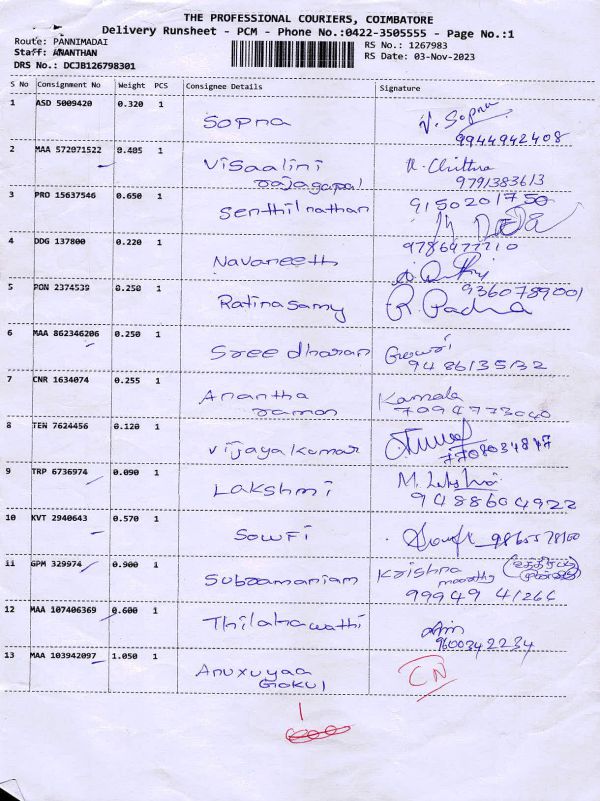 THE PROFESSIONAL COURIERS, COIMBATORE
Delivery Runsheet - PCM - Phone No.:0422-3505555 - Page No.:1
Route: PANNIMADAI
RS No.: 1267983
Staff: ANANTHAN
RS Date: 03-Nov-2023
DRS No.: DCJB126798301
S No Consignment No Weight PCS Consignee Details Signature
1 ASD 5009420 0.320 1
Sopna V. Sopna
9944942408
2 MAA 572071522 0.405 1
Visaalini R. Chithra
rajagopal 9791383613
3 PRO 15637546 0.650 1
Senthilnathan 9150201750
4 DDG 137800 0.220 1
9786477710
Navaneeth
5 PON 2374539 0.250 1
9360789001
Ratinasamy R. Padma
6 MAA 862346206 0.250 1
Sreedharan Gowri
9486135132
7 CNR 1634074 0.255 1
Anantha Kamala
raman 7094773040
8 TEN 7624456 0.120 1
Vijayakumar
9 TRP 6736974 0.090 1
Lakshmi
9488604922
10 KVT 2940643 0.570 1
Sowfi
11 GPM 329974 0.900 1
Subramaniam Krishna
moorthy
99949 41266
12 MAA 107406369 0.600 1
Thilakawathi
9600342234
13 MAA 103942097 1.050 1
Anuxuyaa CN
Gokul
1